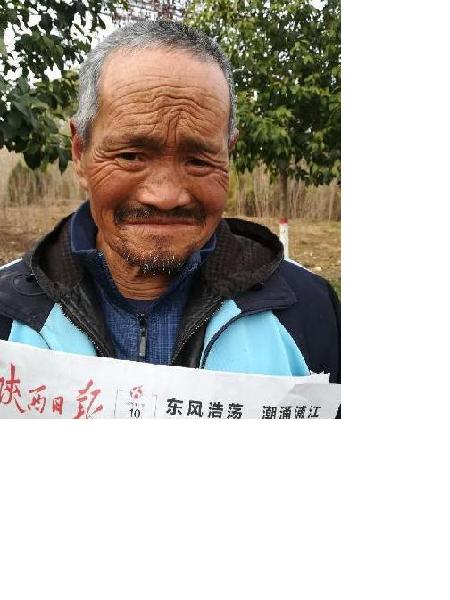 陕西日报
10
东风浩荡 潮涌浦江